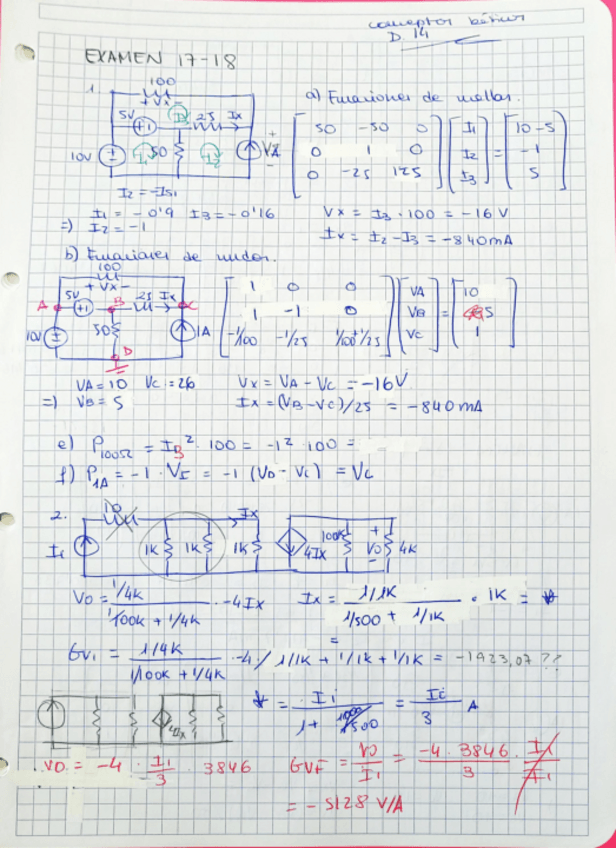 conceptos básicos
D. 14
EXAMEN 17-18
1.
100
+ Vx -
5V
25 Ix
10V
50
I1
I2
I3
I2 = -Is1
a) Ecuaciones de mallas.
50 -50 0 I1 10-5
0 1 0 I2 = -1
0 -25 125 I3 5
I1 = -0'9 I3 = -0'16
=) I2 = -1
Vx = I3 · 100 = -16 V
Ix = I2 - I3 = -840mA
b) Ecuaciones de nudos.
100
+ Vx -
A
5V
B
25 Ix
C
10V
50
1A
D
1 0 0 VA 10
1 -1 0 VB = 5
-1/100 -1/25 1/100+1/25 VC 1
VA = 10 VC = 26
=) VB = 5
Vx = VA - VC = -16V
Ix = (VB - VC)/25 = -840mA
e) P100Ω = IB² · 100 = -1² · 100 =
f) P1A = -1 · VI = -1 (VD - VC) = VC
2.
10
Ix
Ii
1K
1K
1K
4Ix
100K
+
Vo
-
4K
Vo = 1/4K / 1/100K + 1/4K · -4Ix
Ix = 1/1K / 1/500 + 1/1K · 1K =
Gvi = 1/4K / 1/100K + 1/4K · -4 / 1/1K + 1/1K + 1/1K = -1923,07 ??
* = Ii / 1 + 1000/500 = Ii / 3 A
4Ix
Vo = -4 · Ii/3 · 3846
GVF = Vo/Ii = -4 · 3846 / 3 · Ii/Ii
= -5128 V/A